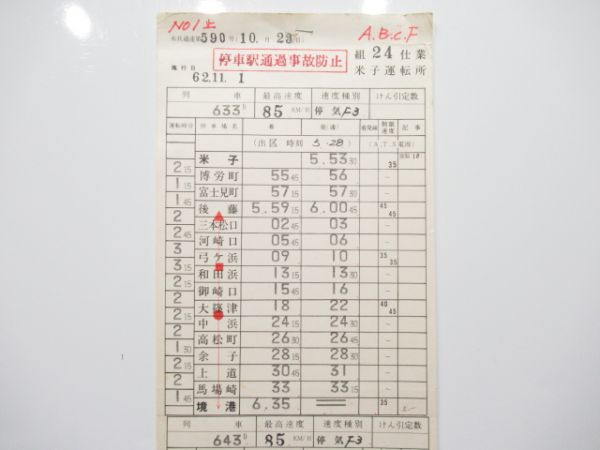 NO1土
A.B.C.F
米鉄運達第590号(10.月23日)
停車駅通過事故防止
組 24 仕業
施行日 62.11.1
米子運転所
列 車 最高速度 速度種別 けん引定数
633D 85 KM/H 停気F3
運転時分 停車場名 着 発(通) 着発線 制限速度 記事
(出区 時刻 5.28) (A.T.S 電源)
米子 5.53 30 35
2 15 博労町 55 45 56 -
1 15 富士見町 57 15 57 30 -
1 45 後藤 5.59 15 6.00 45 45 45
2 三本松口 02 45 03 -
2 45 河崎口 05 45 06 -
3 弓ケ浜 09 10 35 35
3 15 和田浜 13 15 13 30 -
2 45 御崎口 16 16 15 -
1 45 大篠津 18 22 40 45
2 15 中浜 24 15 24 30 -
2 高松町 26 30 26 45 -
1 30 余子 28 15 28 30 -
2 15 上道 30 45 31 -
2 馬場崎 33 33 15 -
1 45 境港 6.35 35
列 車 最高速度 速度種別 けん引定数
643D 85 KM/H 停気F3